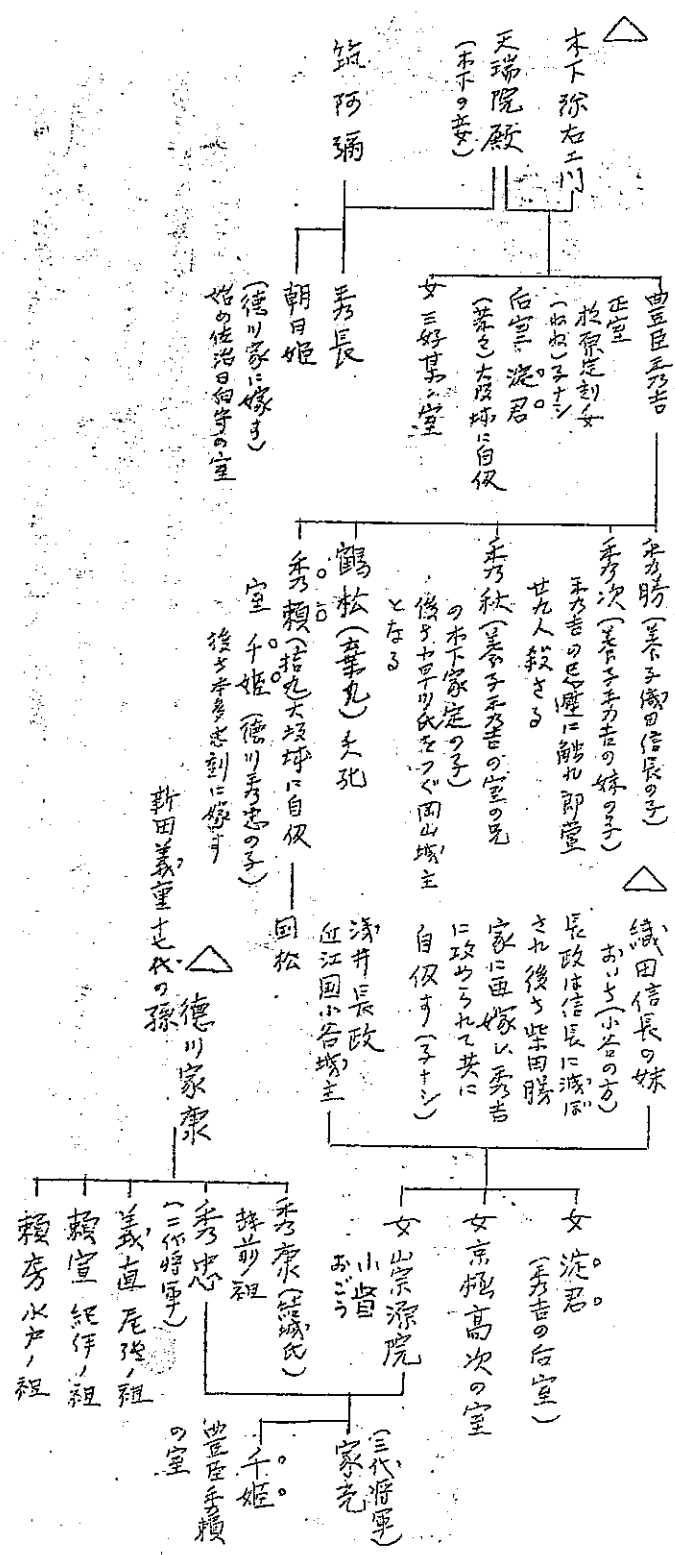 △
木下弥右エ門
天瑞院殿
(木下の妾)
筑阿彌
豊臣秀吉
正室
杉原定利女
(ねね)子ナシ
后室 淀君
(茶々)大阪城に自仭
女 三好某ノ室
秀長
朝日姫
(徳川家に嫁す)
始め佐治日向守の室
秀勝(養子織田信長の子)
秀次(養子秀吉の妹の子)
秀吉の忌歴に触れ郎党
廿九人殺さる
秀秋(養子秀吉の室の兄
の木下家定の子)
後ち小早川氏をつぐ岡山城主
となる
鶴松(棄丸)夭死
秀頼(拾丸大坂城に自仭
室 千姫(徳川秀忠の子)
後ち本多忠刻に嫁す
国松
△
織田信長の妹
おいち(小谷の方)
長政は信長に滅ぼ
され後ち柴田勝
家に再嫁し秀吉
に攻められて共に
自仭す(子ナシ)
浅井長政
近江国小谷城主
女 淀君
(秀吉の后室)
女 京極高次の室
女 崇源院
小督
おごう
△
徳川家康
新田義重十七代の孫
秀康(結城氏)
越前ノ祖
秀忠
(二代将軍)
義直 尾張ノ祖
頼宣 紀伊ノ祖
頼房 水戸ノ祖
(三代将軍)
家光
千姫
豊臣秀頼
の室